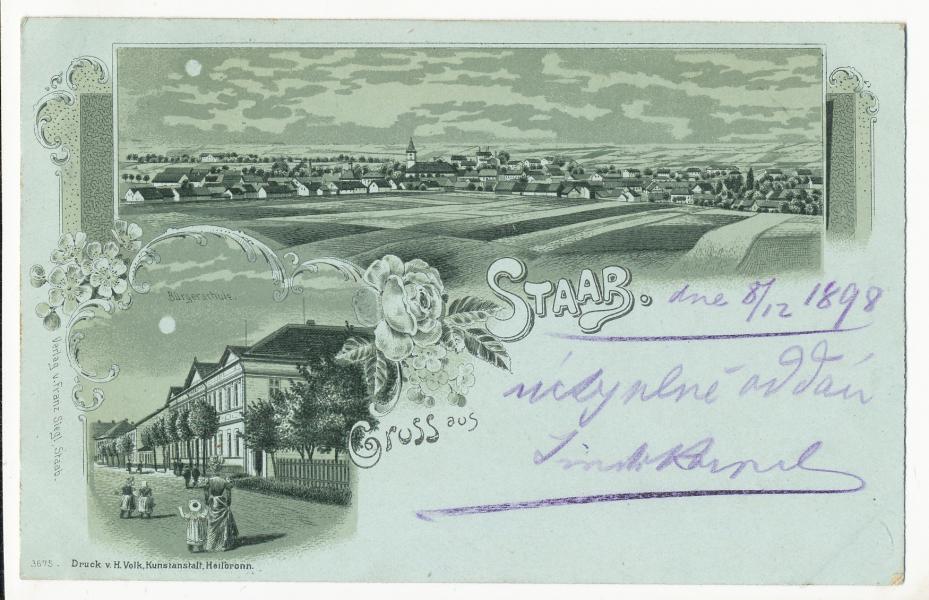 Bürgerschule.
Gruss aus
STAAB.
dne 8/12 1898
úctyplně oddán
Verlag v. Franz Siegl, Staab.
3675. Druck v. H. Volk, Kunstanstalt, Heilbronn.